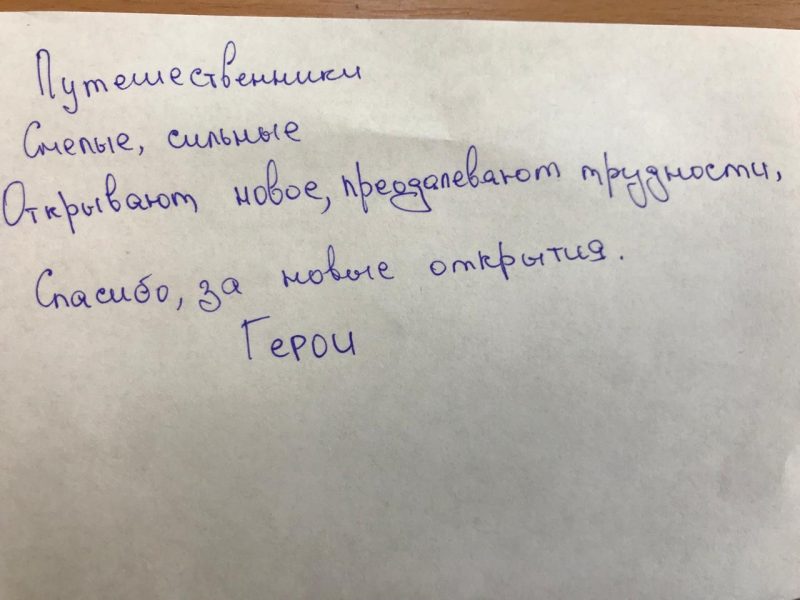 Путешественники
Смелые, сильные
Открывают новое, преодалевают трудности,
Спасибо, за новые открытия.
Герои